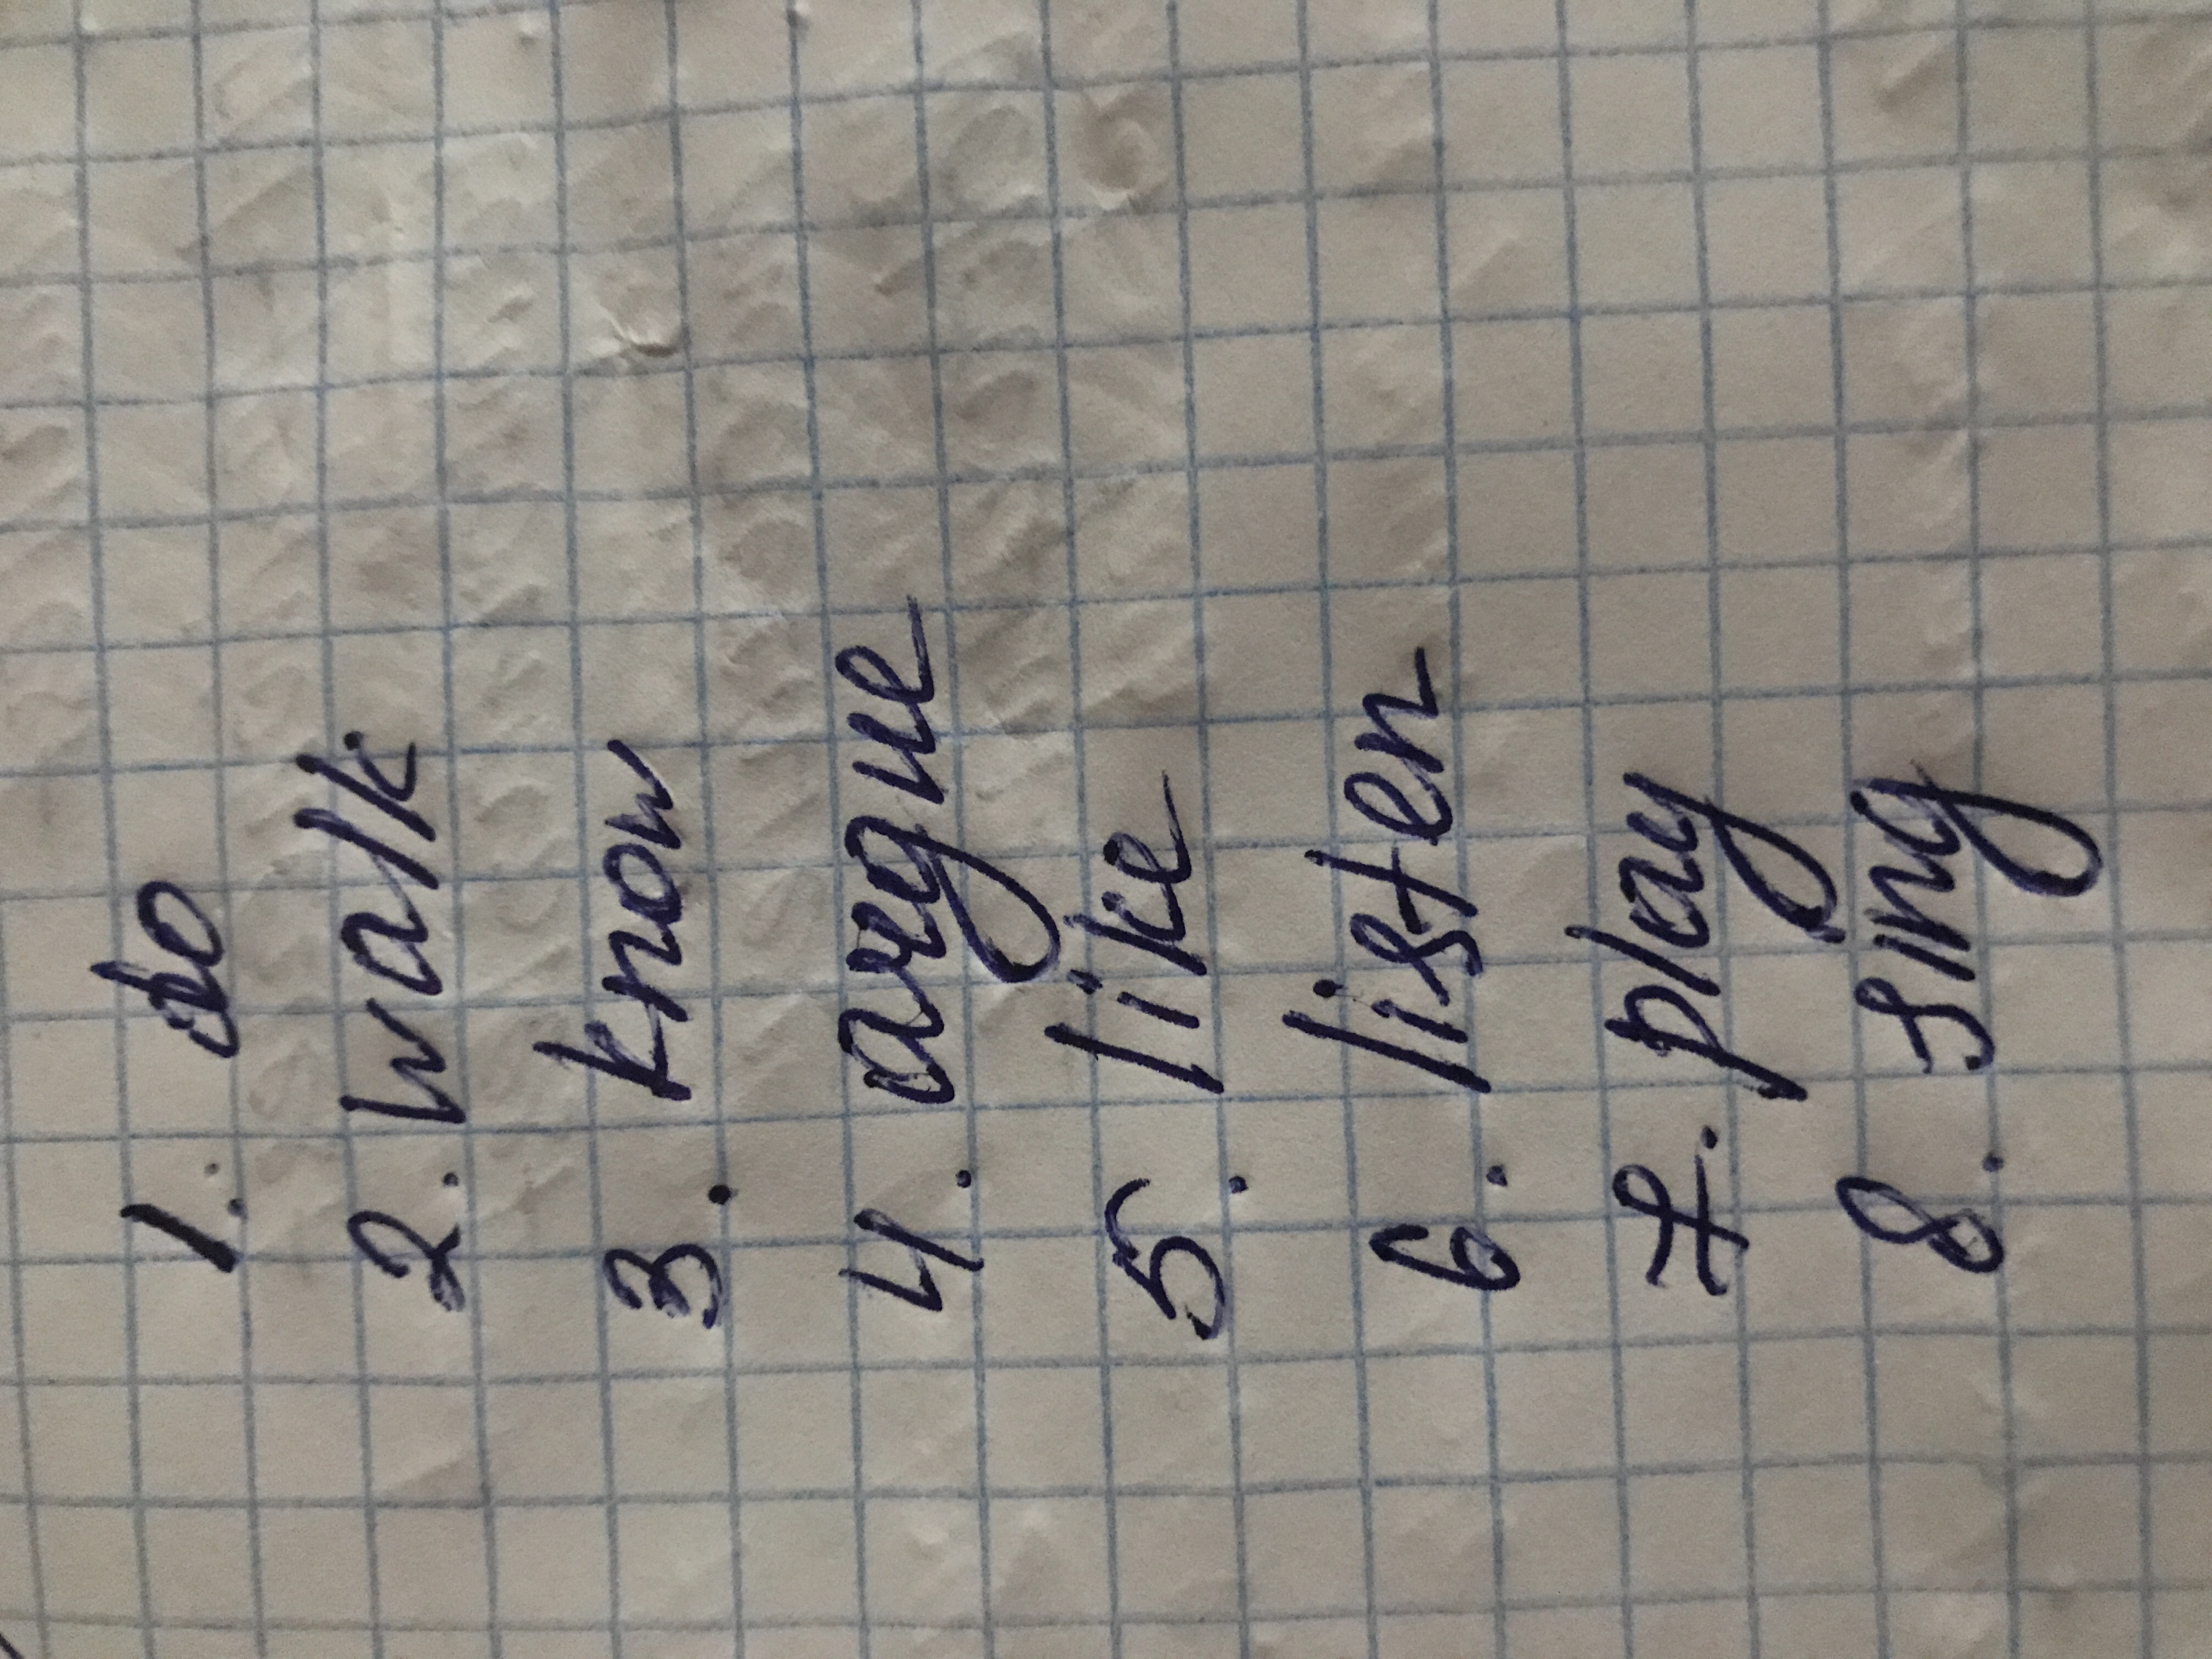 1. do
2. walk
3. know
4. argue
5. like
6. listen
7. play
8. sing